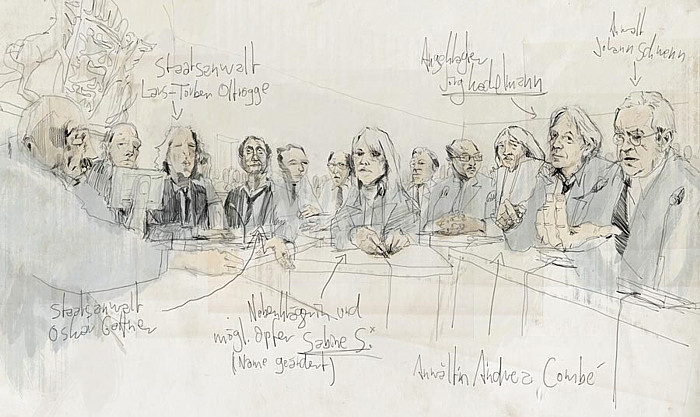 Staatsanwalt
Lars-Torben Oltrogge
Angeklagter
Jörg Kachelmann
Anwalt
Johann Schwenn
Staatsanwalt
Oskar Gattner
Nebenklägerin und
mögl. Opfer Sabine S.*
(Name geändert)
Anwältin Andrea Combé